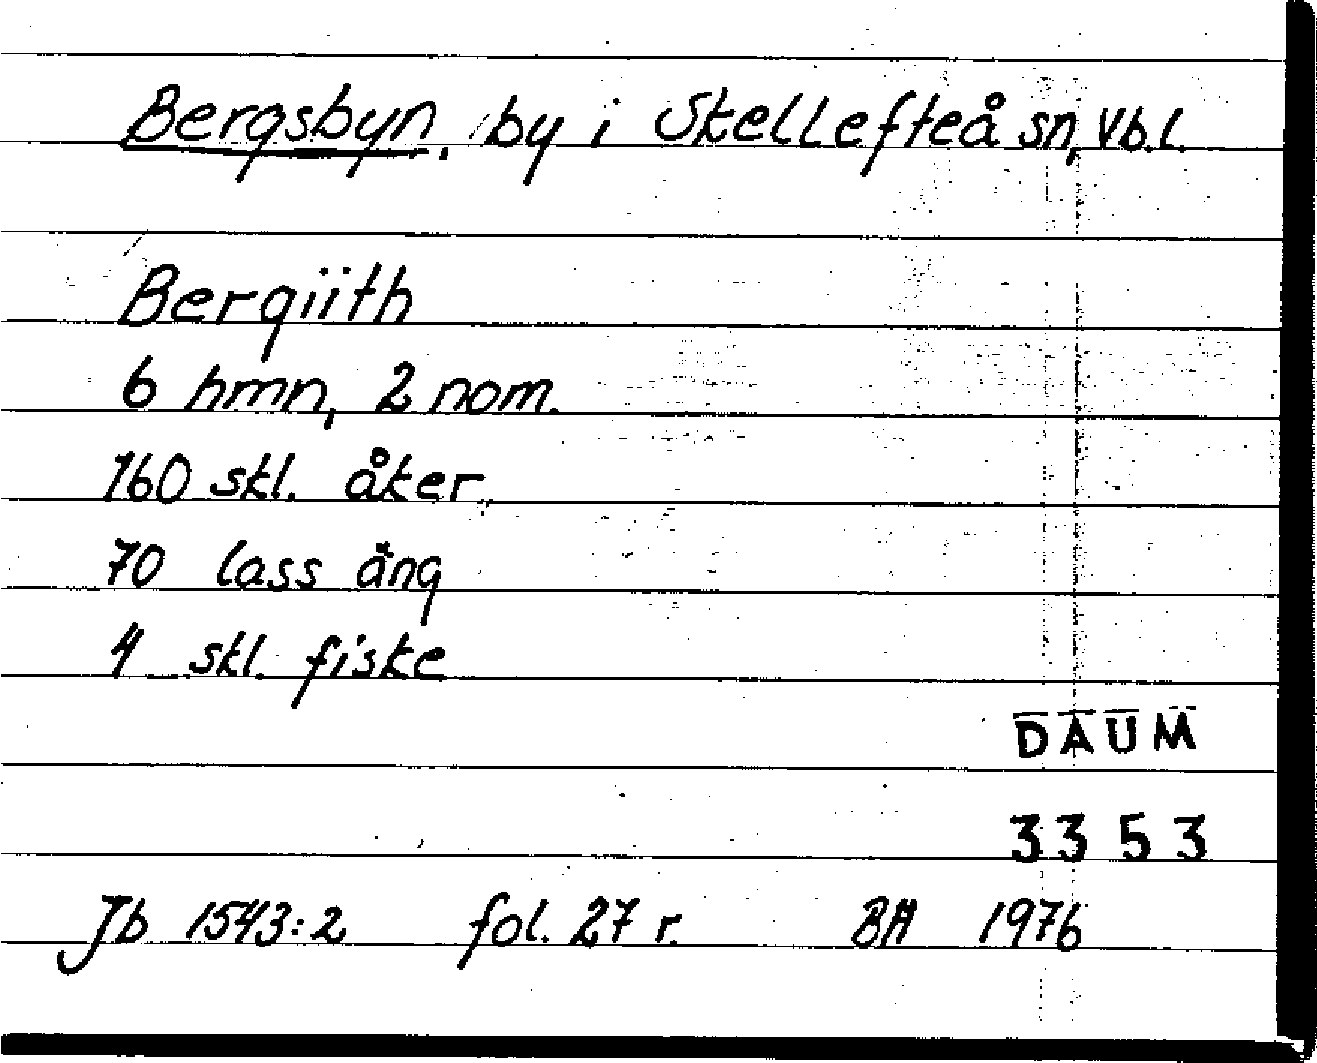 Bergsbyn, by i Skellefteå sn, Vb.l.
Bergiith
6 hmn, 2 nom.
160 skl. åker
70 lass äng
4 skl. fiske
DAUM
3353
Jb 1543:2 fol. 27 r. BH 1976